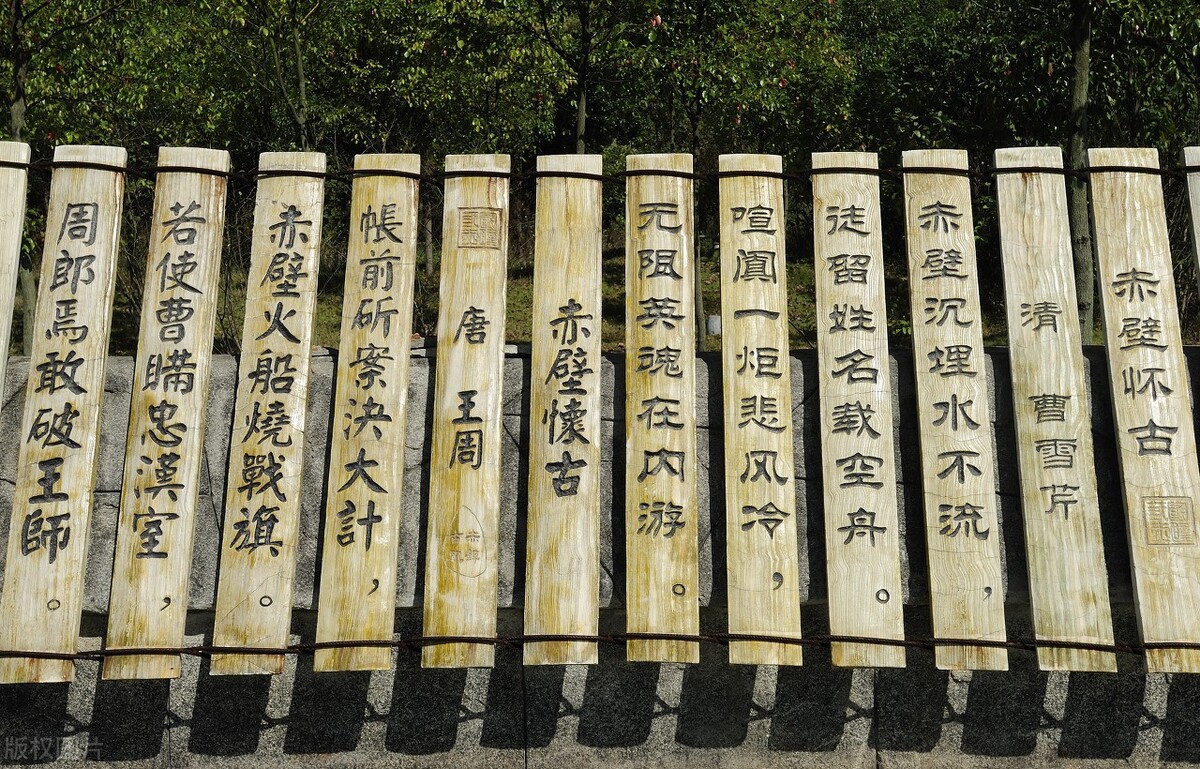 赤壁怀古
清 曹雪芹
赤壁沉埋水不流，
徒留姓名载空舟。
喧阗一炬悲风冷，
无阻英魂在内游。
赤壁懷古
唐 王周
帳前斫案決大計，
赤壁火船燒戰旗。
若使曹瞞忠漢室，
周郎焉敢破王師。
版权图片